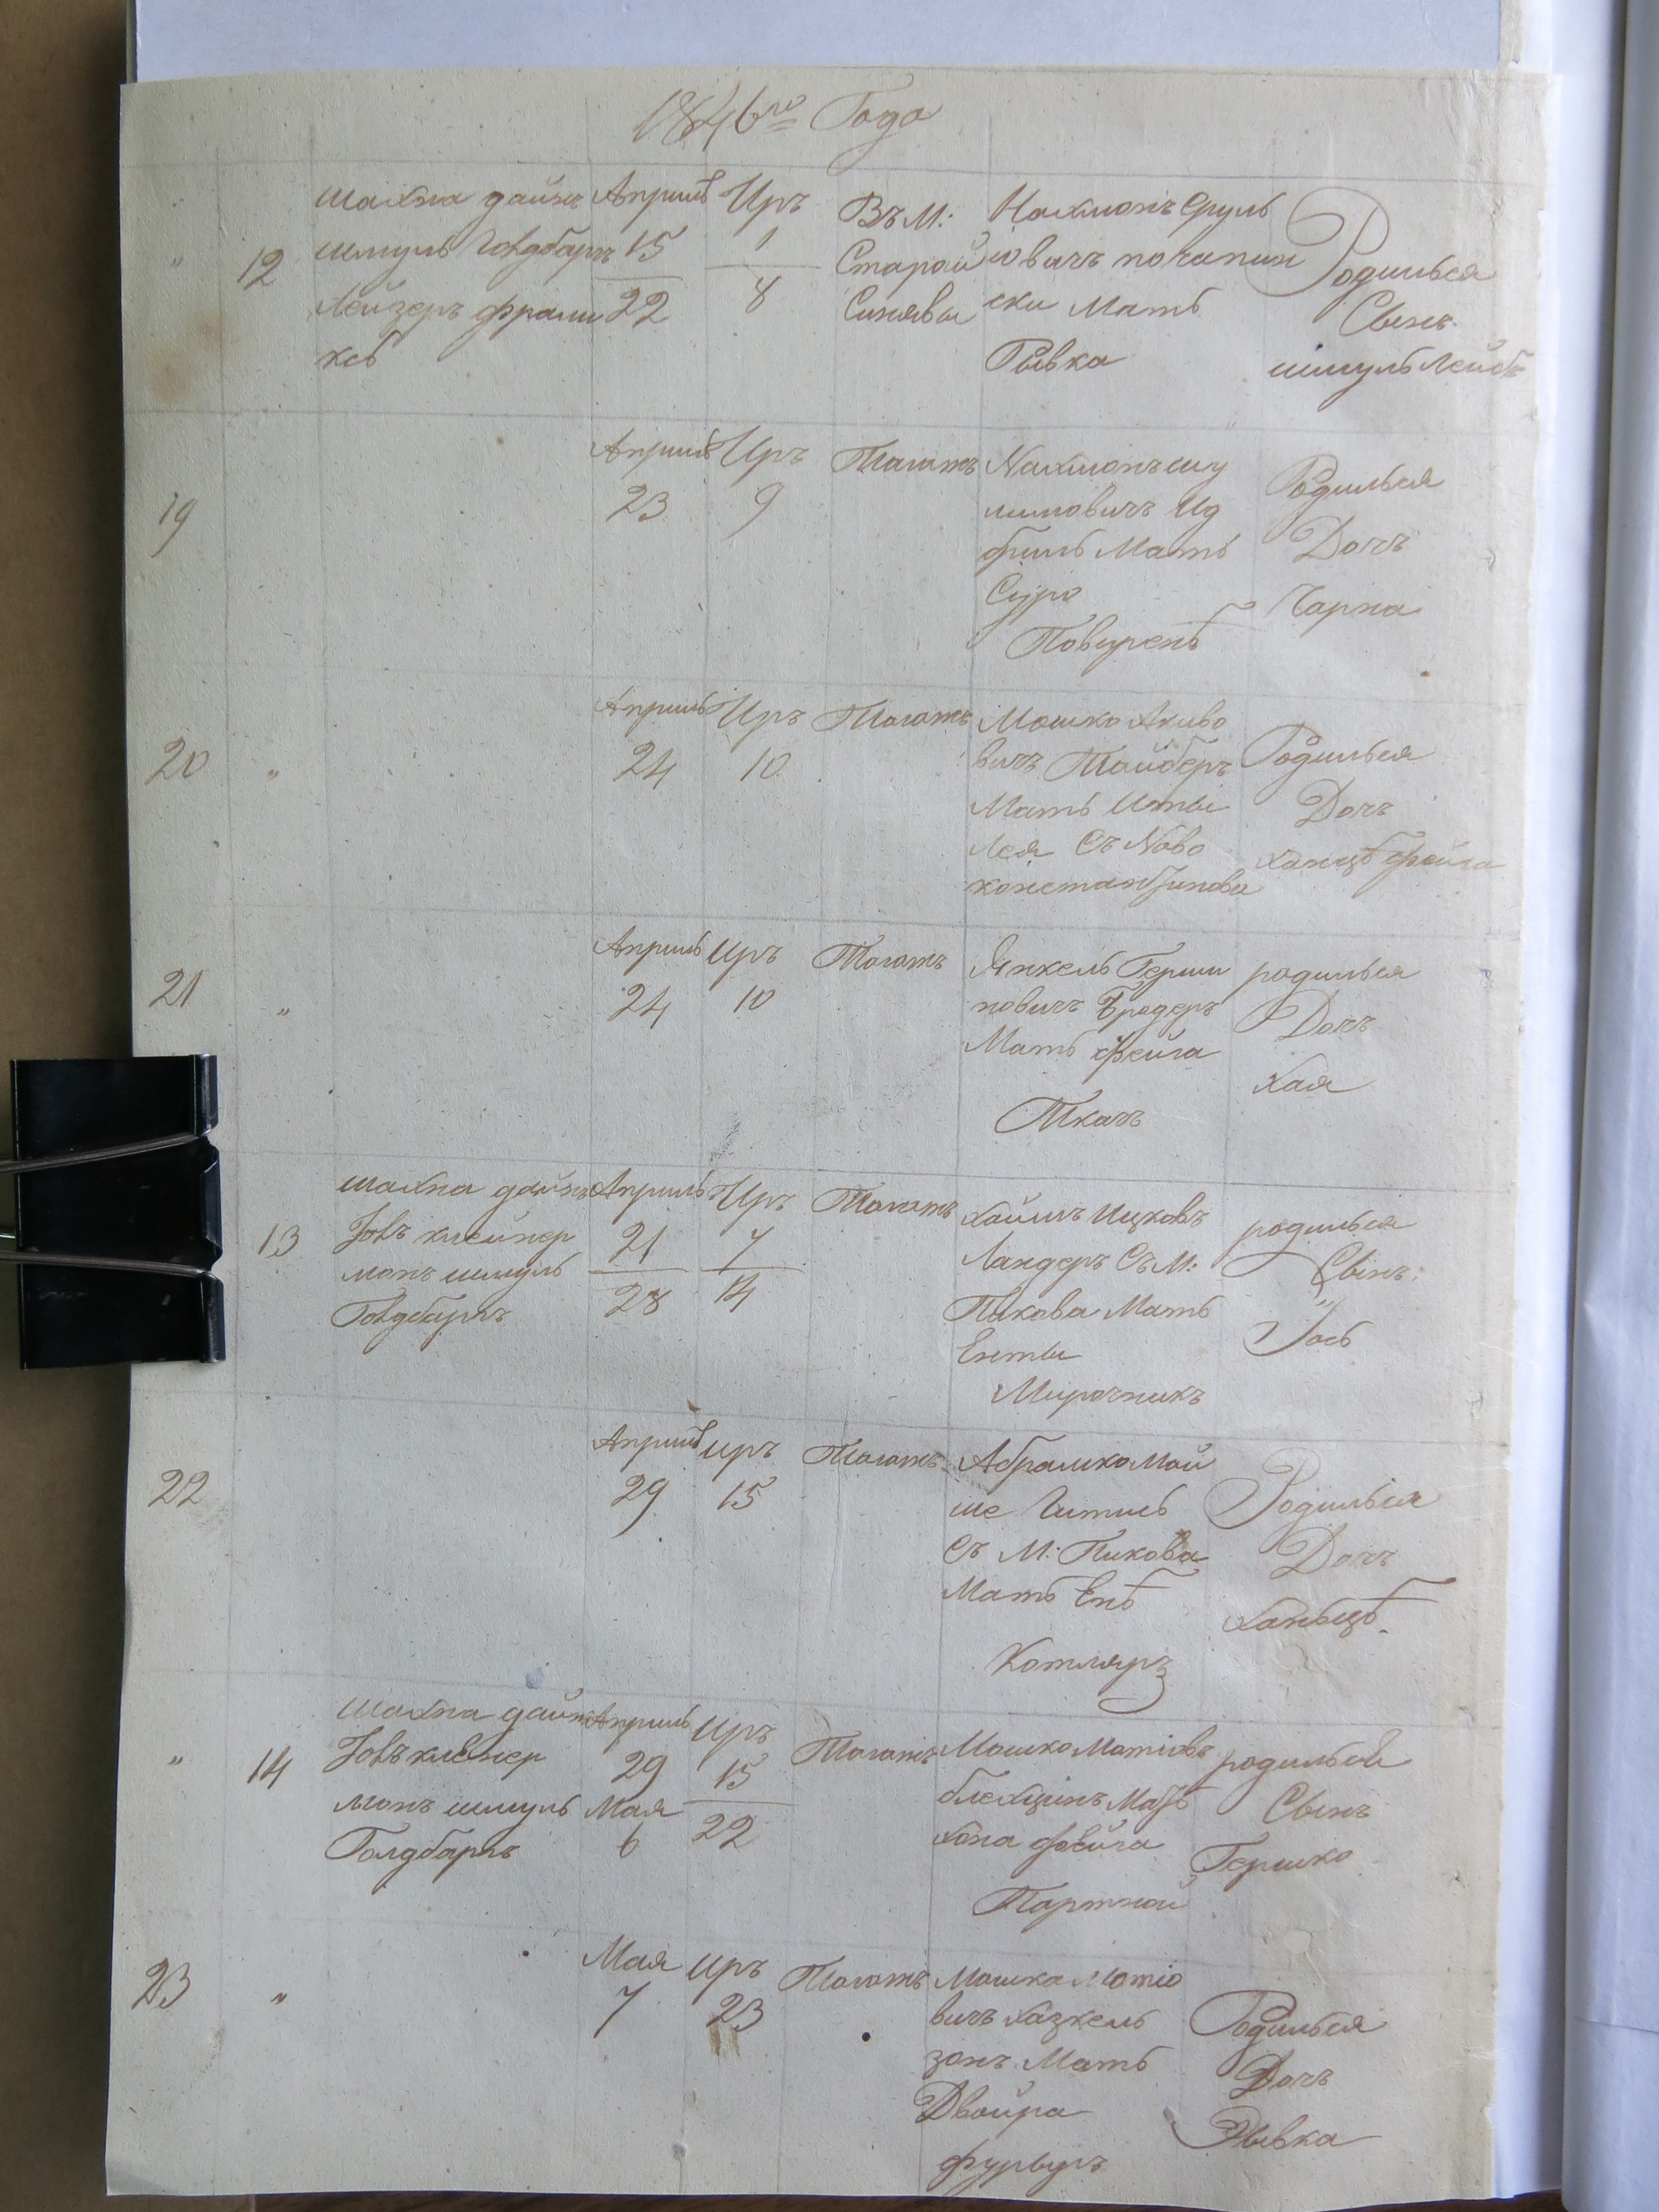 1846го Года
"
12
шахна даинъ
шмуль Говдбаръ
Лейзеръ франи
кеб
Априль
15
22
Иръ
1
8
Въ М:
Старой
Синявы
Нахманъ Сруль
овичъ почапин
ски Мать
Рывка
Родилься
Сынъ
шмуль Лейбъ
19
Априль
23
Иръ
9
Тагамъ
Нахманъ шу
лимовичъ Ид
Мать
Сура
Родилься
Дочъ
Чарна
20
"
Априль
24
Иръ
10
Тагамъ
Мошко Акиво
вичъ Тайберъ
Мать Ить
Лея Съ Ново
константинова
Родилься
Дочъ
ханцъ фейга
21
"
Априль
24
Иръ
10
Тагамъ
Янкель Герши
новичъ Бродеръ
Мать фейга
Ткачъ
родилься
Дочъ
хая
13
шахна даинъ
Іовъ клейнер
манъ шмуль
Говдбаръ
Априль
21
28
Иръ
7
14
Тагамъ
хаимъ Ицковъ
Ландеръ Съ М:
Пикова Мать
Енты
Мирочникъ
родилься
Сынъ:
Іось
22
Априль
29
Иръ
15
Тагамъ
Абрамко Мой
ше Читись
Съ М: Пикова
Мать Енъ
Котляръ
Родилься
Дочъ
ханьцъ
"
14
шахна даинъ
Іовъ клейнер
манъ шмуль
Голдбаръ
Априль
29
Мая
6
Иръ
15
22
Тагамъ
Мошко Матіовъ
блехцинъ Мать
хона фейга
Партной
родилься
Сынъ
Гершко
23
"
Мая
7
Иръ
23
Тагамъ
Мошка Матіо
вичъ хазкель
зонъ Мать
Двойра
Родилься
Дочъ
Рывка